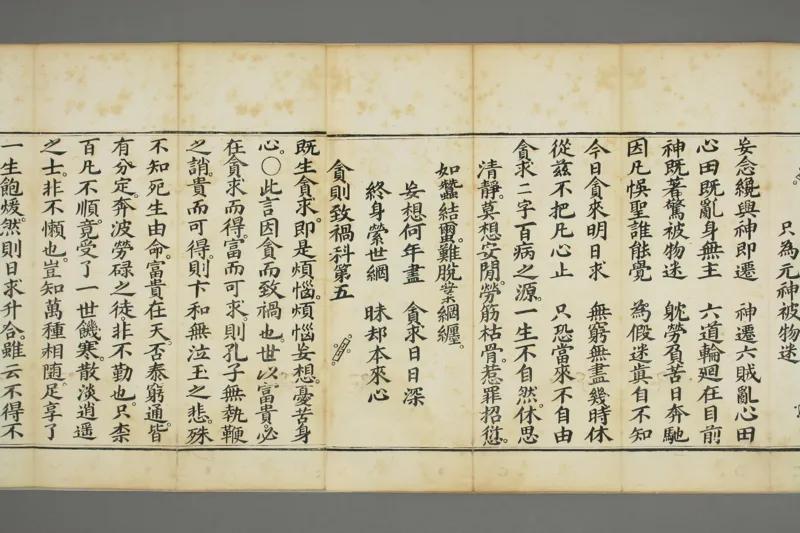 只為元神被物迷
妄念纔興神即遷　神遷六賊亂心田
心田既亂身無主　六道輪廻在目前
神既著驚被物迷　躭勞負苦日奔馳
因凡悞聖誰能覺　為假迷真自不知
今日貪來明日求　無窮無盡幾時休
從茲不把凡心止　只恐當來不自由
貪求二字百病之源。一生不自然。休思
清靜。莫想安閒。勞筋枯骨。惹罪招愆。
如蠶結蠒。難脫業綱纏。
妄想何年盡　貪求日日深
終身縈世綱　昧却本來心
貪則致禍科第五
既生貪求。即是煩惱。煩惱妄想。憂苦身
心。〇此言因貪而致禍也。世以富貴。必
在貪求而得。富而可求。則孔子無執鞭
之誚。貴而可得。則卞和無泣玉之悲。殊
不知死生由命。富貴在天。否泰窮通。皆
有分定。奔波勞碌之徒。非不勤也。只柰
百凡不順。竟受了一世饑寒。散淡逍遥
之士。非不懶也。豈知萬種相随。足享了
一生飽煖。然則日求升合。雖云不得不